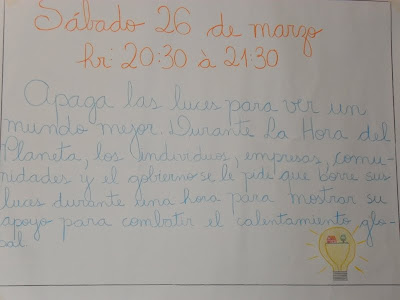 Sábado 26 de marzo
hr: 20:30 à 21:30
Apaga las luces para ver un
mundo mejor. Durante la Hora del
Planeta, los individuos, empresas, comu-
nidades y el gobierno se le pide que borre sus
luces durante una hora para mostrar su
apoyo para combatir el calentamiento glo-
bal